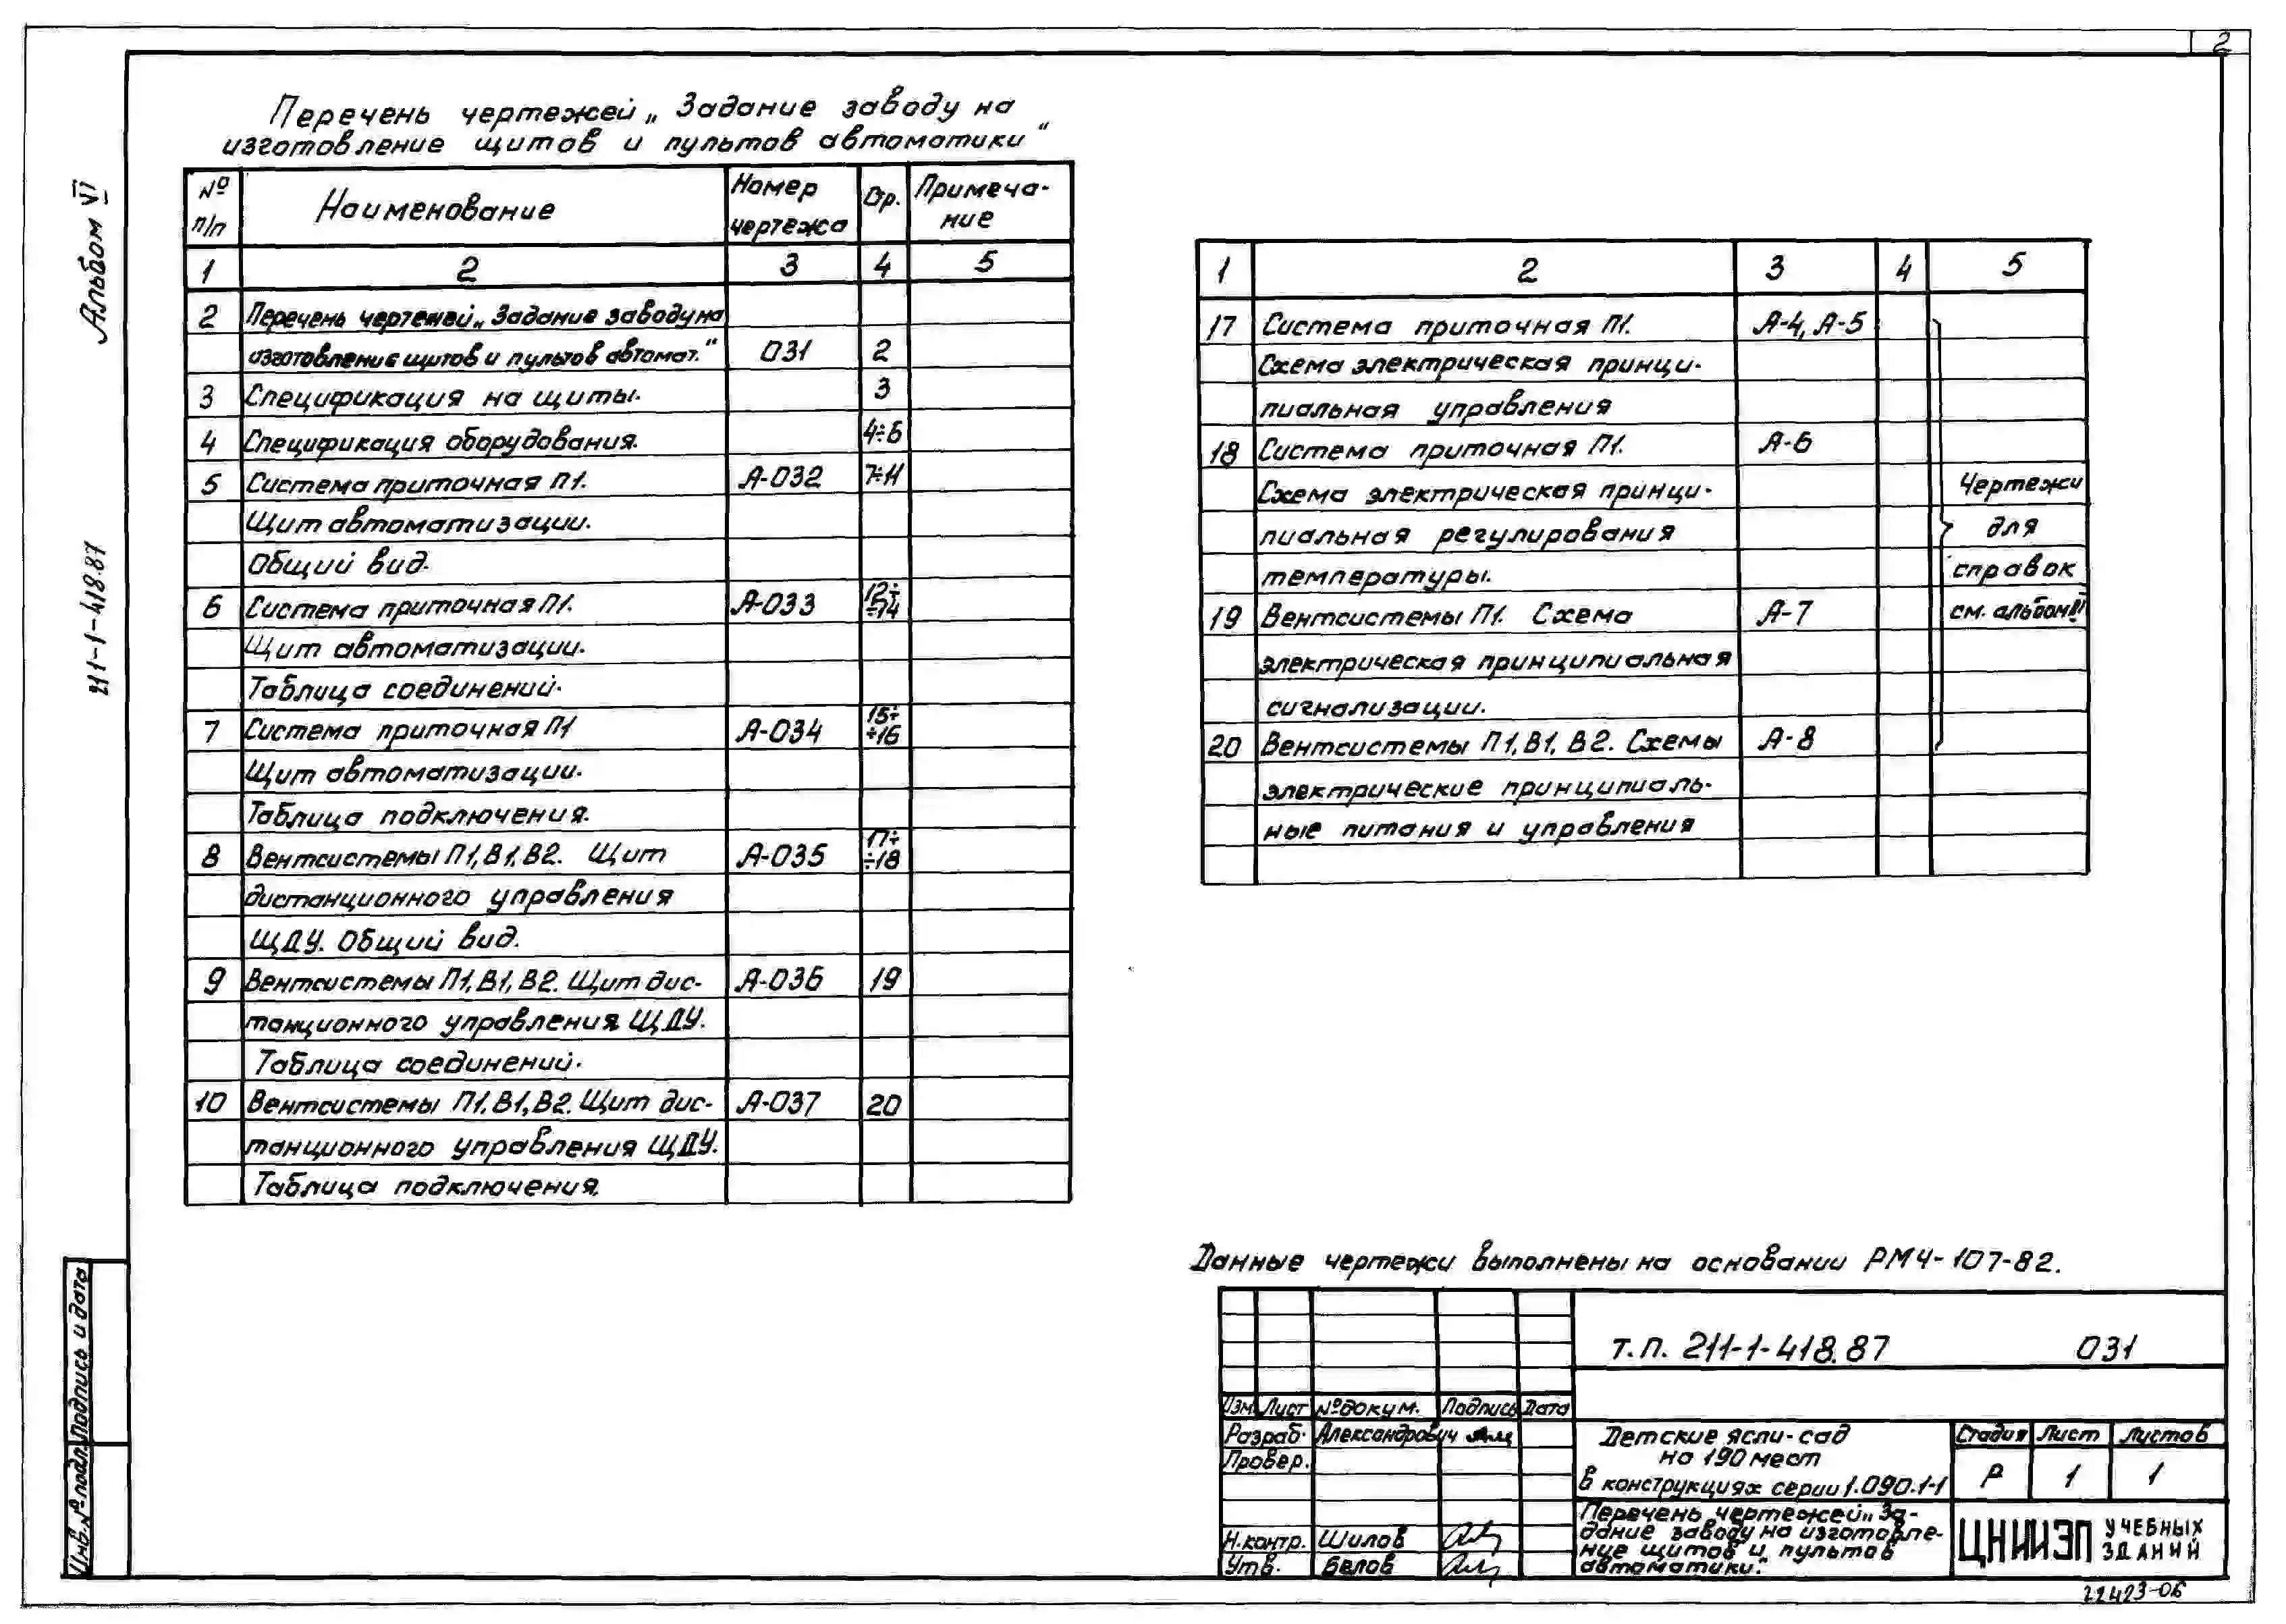 2
Альбом VI
211-1-418.87
Перечень чертежей „Задание заводу на
изготовление щитов и пультов автоматики“
№ п/п Наименование Номер чертежа Стр. Примечание
1 2 3 4 5
2 Перечень чертежей „Задание заводу на
изготовление щитов и пультов автомат.“ 031 2
3 Спецификация на щиты. 3
4 Спецификация оборудования. 4÷6
5 Система приточная П1. А-032 7÷11
Щит автоматизации.
Общий вид.
6 Система приточная П1. А-033 12÷÷14
Щит автоматизации.
Таблица соединений.
7 Система приточная П1 А-034 15÷÷16
Щит автоматизации.
Таблица подключения.
8 Вентсистемы П1, В1, В2. Щит А-035 17÷÷18
дистанционного управления
ЩДУ. Общий вид.
9 Вентсистемы П1, В1, В2. Щит дис- А-036 19
танционного управления ЩДУ.
Таблица соединений.
10 Вентсистемы П1, В1, В2. Щит дис- А-037 20
танционного управления ЩДУ.
Таблица подключения.
1 2 3 4 5
17 Система приточная П1. А-4, А-5
Схема электрическая принци-
пиальная управления
18 Система приточная П1. А-6
Схема электрическая принци- Чертежи
пиальная регулирования для
температуры. справок
19 Вентсистемы П1. Схема А-7 см. альбом
электрическая принципиальная
сигнализации.
20 Вентсистемы П1, В1, В2. Схемы А-8
электрические принципиаль-
ные питания и управления
Данные чертежи выполнены на основании РМ4-107-82.
т.п. 211-1-418.87 031
Изм. Лист № докум. Подпись Дата
Разраб. Александрович
Провер.
Н.контр. Шилов
Утв. Белов
Детские ясли-сад
на 190 мест
в конструкциях серии 1.090.1-1
Стадия Лист Листов
Р 1 1
Перечень чертежей „За-
дание заводу на изготовле-
ние щитов и пультов
автоматики.“
ЦНИИЭП УЧЕБНЫХ
ЗДАНИЙ
Подпись и дата
Инв. № подл.
22423-06